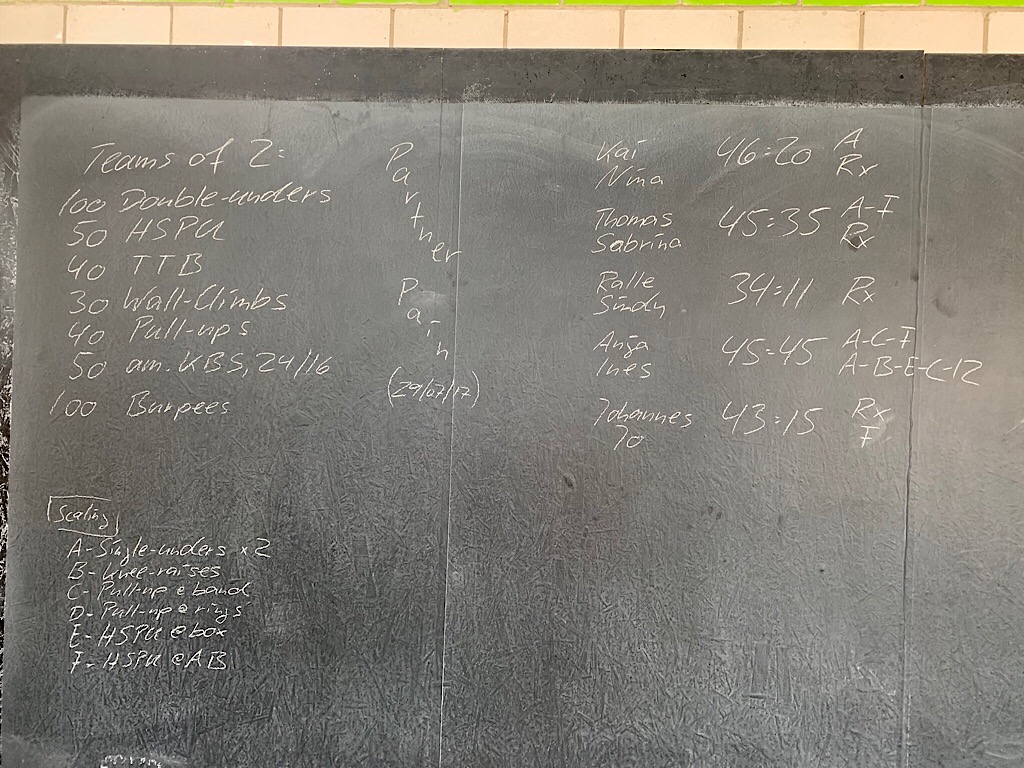 Teams of 2:
100 Double-unders
50 HSPU
40 TTB
30 Wall-Climbs
40 Pull-ups
50 am. KBS, 24/16
100 Burpees
Partner
Pain
(29/07/17)
Kai 46:20 A
Nina Rx
Thomas 45:35 A-F
Sabrina Rx
Ralle 34:11 Rx
Sindy
Anja 45:45 A-C-F
Ines A-B-E-C-12
Johannes 43:15 Rx
Jo F
Scaling
A-Single-unders x2
B-Knee-raises
C-Pull-up @ band
D-Pull-up @ rings
E-HSPU @ box
F-HSPU @ AB